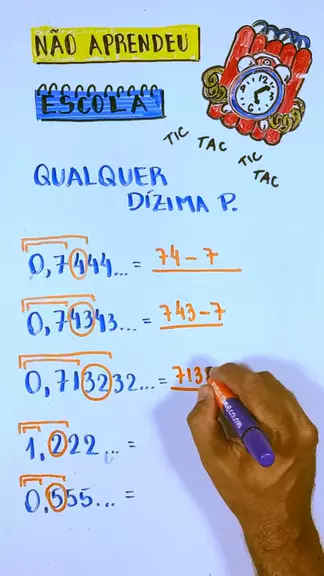 NÃO APRENDEU
ESCOLA
TIC
TAC
TIC
TAC
QUALQUER
DÍZIMA P.
0,7444... = 74 - 7
0,74343... = 743 - 7
0,713232... = 713
1,222... =
0,555... =